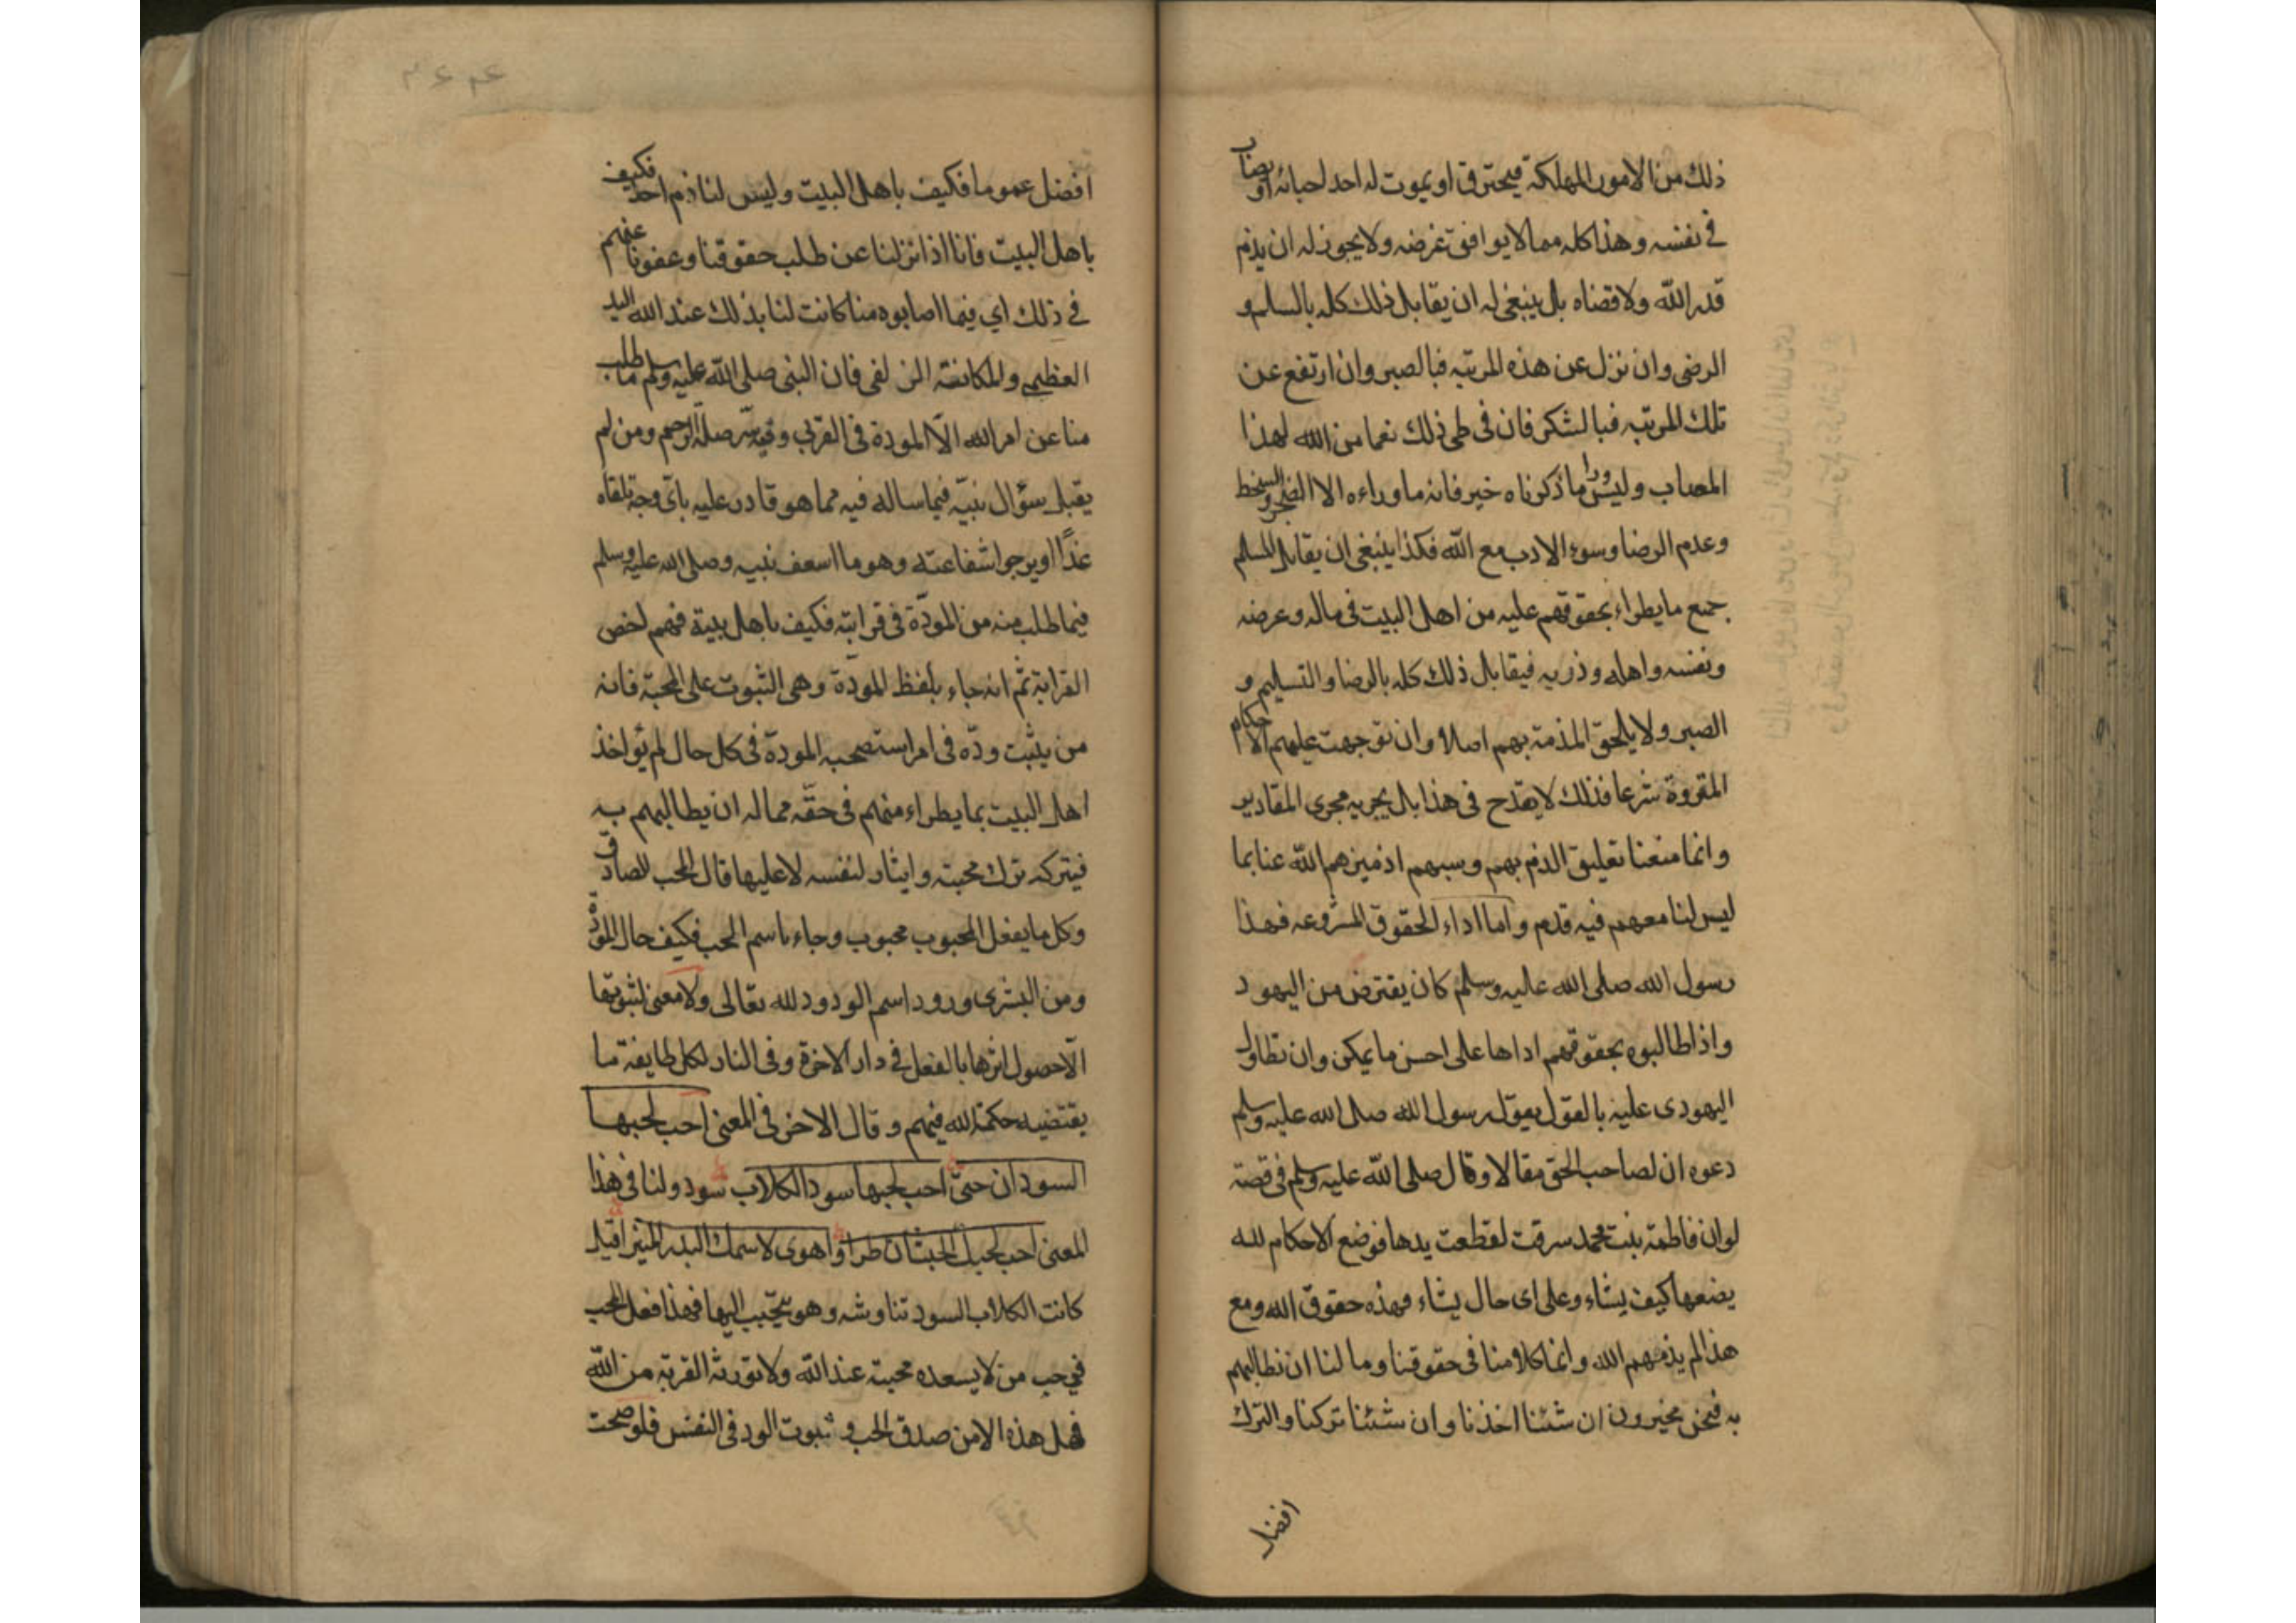 ذلك من الامور المهلكة فيحترق او يموت له احد احبائه او يصاب
في نفسه وهذا كله مما لا يوافق غرضه ولا يجوز له ان يذم
قدر الله ولا قضاه بل ينبغي له ان يقابل ذلك كله بالسلم و
الرضى وان نزل عن هذه المرتبه فبالصبر وان ارتفع عن
تلك المرتبه فبالشكر فان في طي ذلك نعما من الله لهذا
المصاب وليس ورا ما ذكرناه خير فانه ما وراءه الا الضجر والسخط
وعدم الرضا وسوء الادب مع الله فكذا ينبغي ان يقابل المسلم
جميع ما يطراء بحقوقهم عليه من اهل البيت في ماله وعرضه
ونفسه واهله وذريه فيقابل ذلك كله بالرضا والتسليم و
الصبر ولا يلحق المذمة بهم اصلا وان توجهت عليهم الاحكام
المقروة شرعا فذلك لا يقدح في هذا بل يجريه مجرى المقادير
وانما منعنا تعليق الذم بهم وسبهم اذ ميزهم الله عنا بما
ليس لنا معهم فيه قدم واما اداء الحقوق المشروعه فهذا
رسول الله صلى الله عليه وسلم كان يقترض من اليهود
واذا طالبوه بحقوقهم اداها على احسن ما يمكن وان تطاول
اليهودى عليه بالقول يقول رسول الله صلى الله عليه وسلم
دعوه ان لصاحب الحق مقالا وقال صلى الله عليه وسلم في قصة
لو ان فاطمة بنت محمد سرقت لقطعت يدها فوضع الاحكام لله
يضعها كيف يشاء وعلى اى حال يشاء فهذه حقوق الله ومع
هذا لم يذمهم الله وانما كلامنا في حقوقنا وما لنا ان نطالبهم
به فنحن مخيرون ان شئنا اخذنا وان شئنا تركنا والترك
افضل
افضل عموما فكيف باهل البيت وليس لنا ذم احد فكيف
باهل البيت فانا اذا نزلنا عن طلب حقوقنا وعفونا عنهم
في ذلك اي فيما اصابوه منا كانت لنا بذلك عند الله اليد
العظيمى والمكانة الزلفى فان النبى صلى الله عليه وسلم ما طلب
منا عن امر الله الا المودة في القربي وفيه سر صلة الرحم ومن لم
يقبل سؤال نبيه فيما ساله فيه مما هو قادر عليه باي وجه تلقاه
غدا او يرجوا شفاعته وهو ما اسعف نبيه وصلى الله عليه وسلم
فيما طلب منه من المودة في قرابته فكيف باهل بيته فهم اخص
القرابة ثم انه جاء بلفظ المودة وهي الثبوت على المحبة فانه
من يثبت وده في امر استصحبه المودة في كل حال لم يؤاخذ
اهل البيت بما يطراء منهم في حقه مما له ان يطالبهم به
فيتركه ترك محبته وايثار لنفسه لا عليها قال المحب الصادق
وكل ما يفعل المحبوب محبوب وجاء باسم الحب فكيف حال المودة
ومن البشرى ورود اسم الودود لله تعالى ولا معنى لثبوتها
الا حصول اثرها بالفعل في دار الاخرة وفي النار لكل طايفة ما
يقتضيه حكمة الله فيهم وقال الاخر في المعنى احب لحبها
السودان حتى احب لحبها سود الكلاب سود ولنا في هذا
المعنى احب لحبك الحبشان طرا واهوى لاسمك البدر المنير اقيل
كانت الكلاب السود تناوشه وهو يتحبب اليها فهذا فعل المحب
في حب من لا يسعده محبته عند الله ولا تورثه القربة من الله
فهل هذه الا من صدق الحب وثبوت الود في النفس فلو صحت